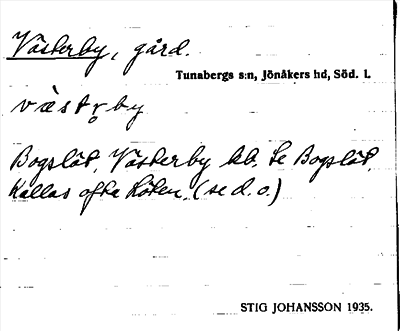 Västerby, gård.
Tunabergs s:n, Jönåkers hd, Söd. l.
vàstr̥by
Bogslöt, Västerby kb. Se Bogslöt.
Kallas ofta Höten. (se d. o.)
STIG JOHANSSON 1935.